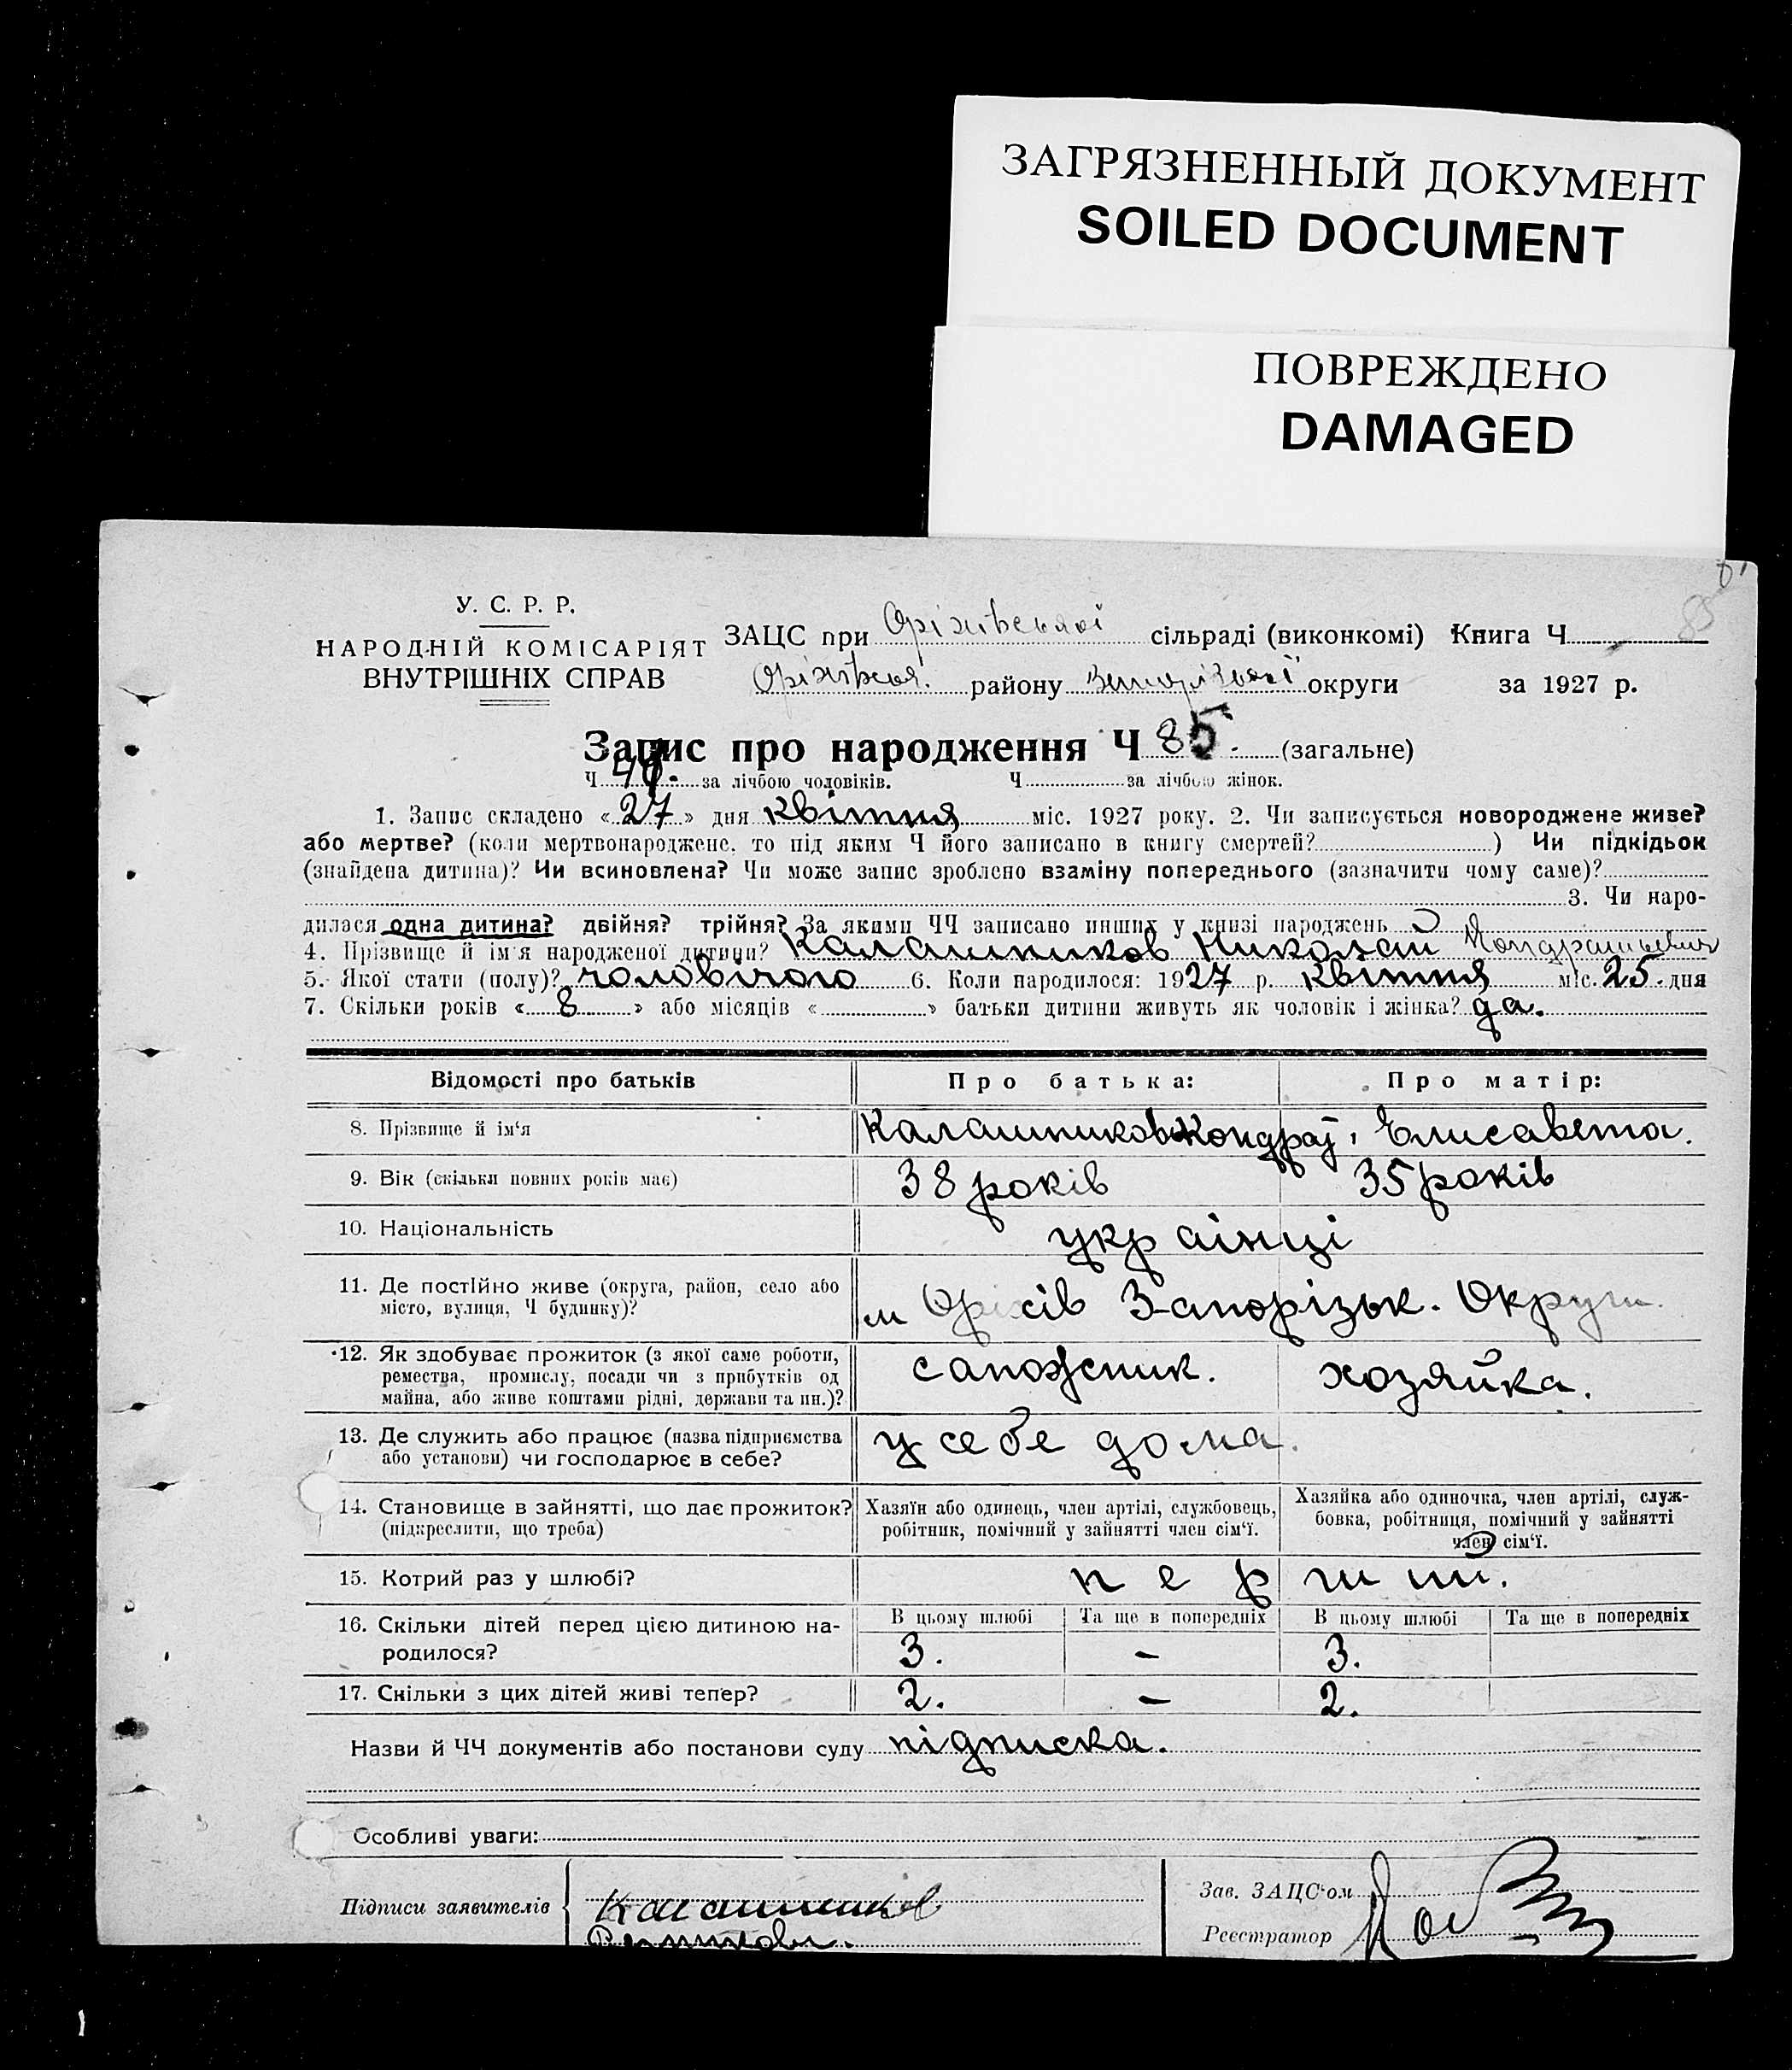 ЗАГРЯЗНЕННЫЙ ДОКУМЕНТ
SOILED DOCUMENT
ПОВРЕЖДЕНО
DAMAGED
У. С. Р. Р.
НАРОДНІЙ КОМІСАРІЯТ
ВНУТРІШНІХ СПРАВ
ЗАЦС при Оріхівській сільраді (виконкомі) Книга Ч 85
району округи за 1927 р.
Запис про народження Ч 85. (загальне)
Ч за лічбою чоловіків. Ч за лічбою жінок.
1. Запис складено «27» дня квітня міс. 1927 року. 2. Чи записується новороджене живе?
або мертве? (коли мертвонароджене, то під яким Ч його записано в книгу смертей? ) Чи підкідьок
(знайдена дитина)? Чи всиновлена? Чи може запис зроблено взаміну попереднього (зазначити чому саме)?
3. Чи наро-
дилася одна дитина? двійня? трійня? За якими ЧЧ записано инших у книзі народжень
4. Прізвище й ім'я народженої дитини? Калашников Николай Кондратьевич
5. Якої стати (полу)? чоловічого 6. Коли народилося: 1927 р. квітня міс. 25. дня
7. Скільки років «8» або місяців « » батьки дитини живуть як чоловік і жінка? да.
Відомості про батьків Про батька: Про матір:
8. Прізвище й ім'я Калашников Кондрат, Елисавета.
9. Вік (скільки повних років має) 38 років 35 років
10. Національність українці
11. Де постійно живе (округа, район, село або
місто, вулиця, Ч будинку)? м Оріхів Запорізьк. Округи.
12. Як здобуває прожиток (з якої саме роботи,
ремества, промислу, посади чи з прибутків од
майна, або живе коштами рідні, держави та ин.)? сапожник. хозяйка.
13. Де служить або працює (назва підприємства
або установи) чи господарює в себе? у себе дома.
14. Становище в зайнятті, що дає прожиток?
(підкреслити, що треба)
Хазяїн або одинець, член артілі, службовець,
робітник, помічний у зайнятті член сім'ї.
Хазяйка або одиночка, член артілі, служ-
бовка, робітниця, помічний у зайнятті
член сім'ї.
15. Котрий раз у шлюбі?
16. Скільки дітей перед цією дитиною на-
родилося?
В цьому шлюбі Та ще в попередніх В цьому шлюбі Та ще в попередніх
3. – 3.
17. Скільки з цих дітей живі тепер? 2. – 2.
Назви й ЧЧ документів або постанови суду підписка.
Особливі уваги:
Підписи заявителів Калашников
Зав. ЗАЦС'ом
Реєстратор